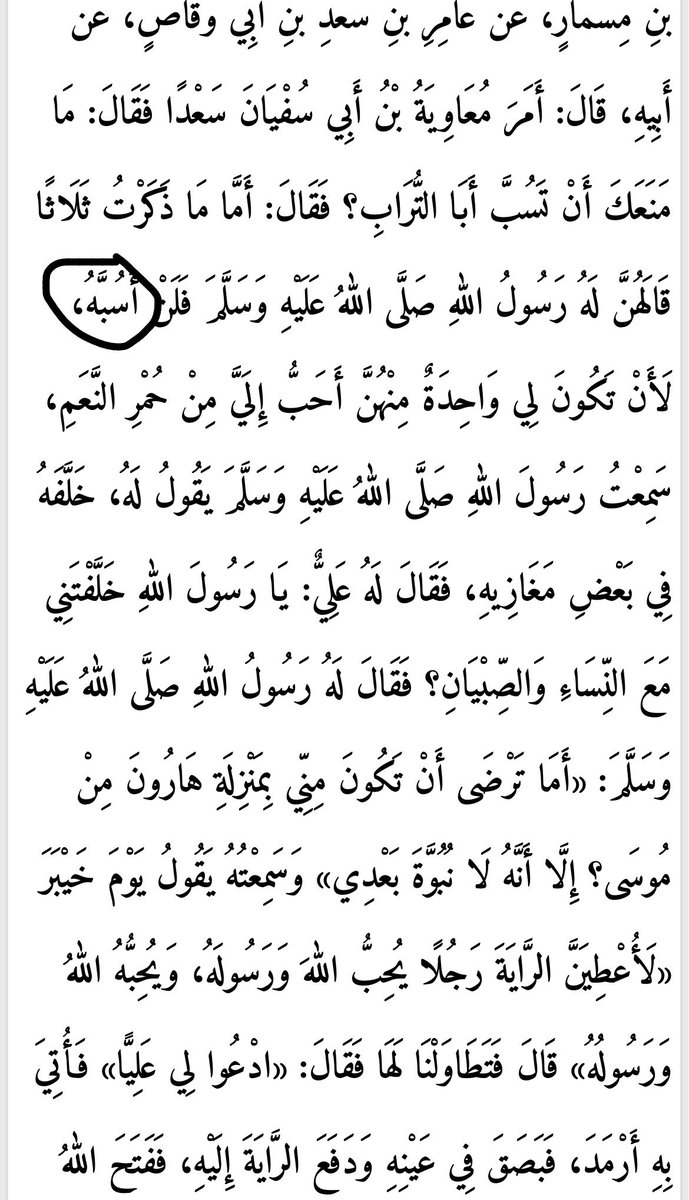 بنِ مِسمارٍ، عن عامِرِ بنِ سعدِ بنِ أبي وقاصٍ، عن
أَبِيهِ، قَالَ: أَمَرَ مُعَاوِيَةُ بْنُ أَبِي سُفْيَانَ سَعْدًا فَقَالَ: مَا
مَنَعَكَ أَنْ تَسُبَّ أَبَا التُّرَابِ؟ فَقَالَ: أَمَّا مَا ذَكَرْتُ ثَلَاثًا
قَالَهُنَّ لَهُ رَسُولُ اللهِ صَلَّى اللهُ عَلَيْهِ وَسَلَّمَ فَلَنْ أَسُبَّهُ،
لَأَنْ تَكُونَ لِي وَاحِدَةٌ مِنْهُنَّ أَحَبُّ إِلَيَّ مِنْ حُمْرِ النَّعَمِ،
سَمِعْتُ رَسُولَ اللهِ صَلَّى اللهُ عَلَيْهِ وَسَلَّمَ يَقُولُ لَهُ، خَلَّفَهُ
فِي بَعْضِ مَغَازِيهِ، فَقَالَ لَهُ عَلِيٌّ: يَا رَسُولَ اللهِ خَلَّفْتَنِي
مَعَ النِّسَاءِ وَالصِّبْيَانِ؟ فَقَالَ لَهُ رَسُولُ اللهِ صَلَّى اللهُ عَلَيْهِ
وَسَلَّمَ: «أَمَا تَرْضَى أَنْ تَكُونَ مِنِّي بِمَنْزِلَةِ هَارُونَ مِنْ
مُوسَى؟ إِلَّا أَنَّهُ لَا نُبُوَّةَ بَعْدِي» وَسَمِعْتُهُ يَقُولُ يَوْمَ خَيْبَرَ
«لَأُعْطِيَنَّ الرَّايَةَ رَجُلًا يُحِبُّ اللهَ وَرَسُولَهُ، وَيُحِبُّهُ اللهُ
وَرَسُولُهُ» قَالَ فَتَطَاوَلْنَا لَهَا فَقَالَ: «ادْعُوا لِي عَلِيًّا» فَأُتِيَ
بِهِ أَرْمَدَ، فَبَصَقَ فِي عَيْنِهِ وَدَفَعَ الرَّايَةَ إِلَيْهِ، فَفَتَحَ اللهُ